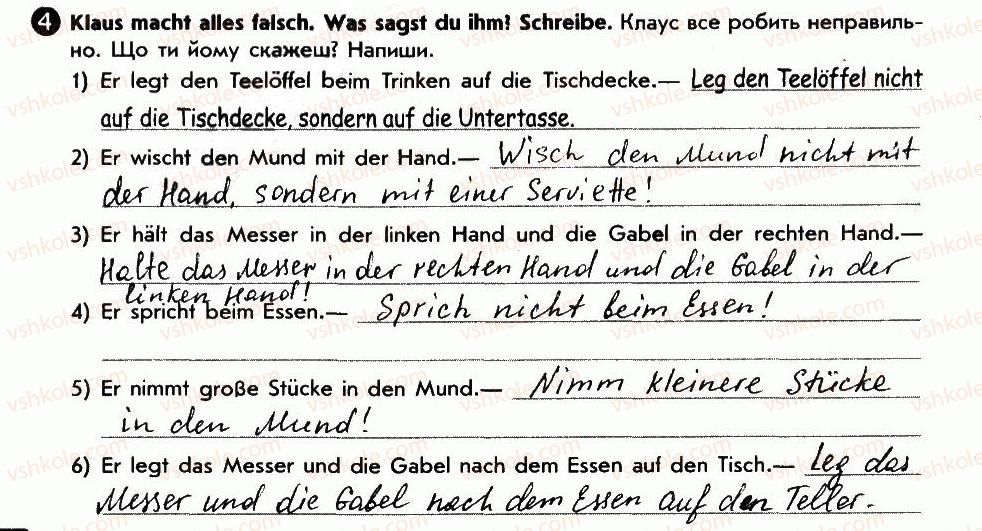 4 Klaus macht alles falsch. Was sagst du ihm? Schreibe. Клаус все робить неправиль-
но. Що ти йому скажеш? Напиши.
1) Er legt den Teelöffel beim Trinken auf die Tischdecke.— Leg den Teelöffel nicht
auf die Tischdecke, sondern auf die Untertasse.
2) Er wischt den Mund mit der Hand.— Wisch den Mund nicht mit
der Hand, sondern mit einer Serviette!
3) Er hält das Messer in der linken Hand und die Gabel in der rechten Hand.—
Halte das Messer in der rechten Hand und die Gabel in der
linken Hand!
4) Er spricht beim Essen.— Sprich nicht beim Essen!
5) Er nimmt große Stücke in den Mund.— Nimm kleinere Stücke
in den Mund!
6) Er legt das Messer und die Gabel nach dem Essen auf den Tisch.— Leg das
Messer und die Gabel nach dem Essen auf den Teller.